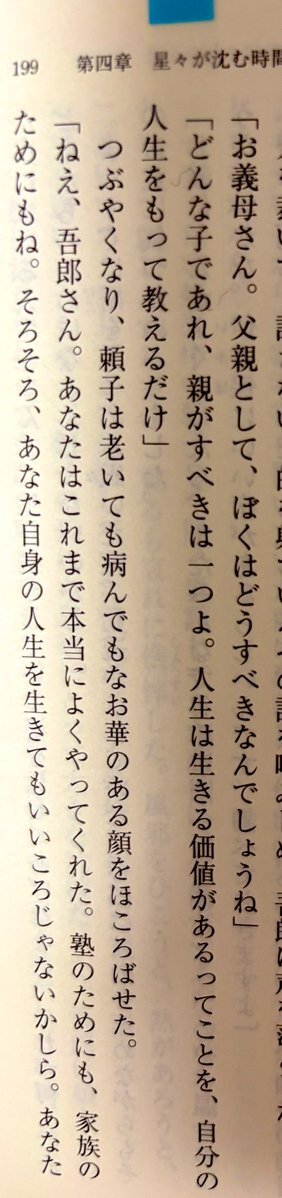 199 第四章 星々が沈む時間
「お義母さん。父親として、ぼくはどうすべきなんでしょうね」
「どんな子であれ、親がすべきは一つよ。人生は生きる価値があるってことを、自分の
人生をもって教えるだけ」
つぶやくなり、頼子は老いても病んでもなお華のある顔をほころばせた。
「ねえ、吾郎さん。あなたはこれまで本当によくやってくれた。塾のためにも、家族の
ためにもね。そろそろ、あなた自身の人生を生きてもいいころじゃないかしら。あなた